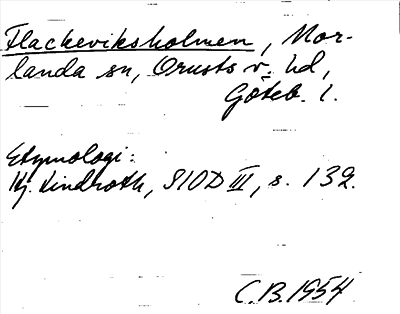 Flackeviksholmen, Mor-
landa sn, Orusts v. hd,
Göteb. l.
Etymologi:
Hj. Lindroth, SIOD III, s. 132.
C.B.1954